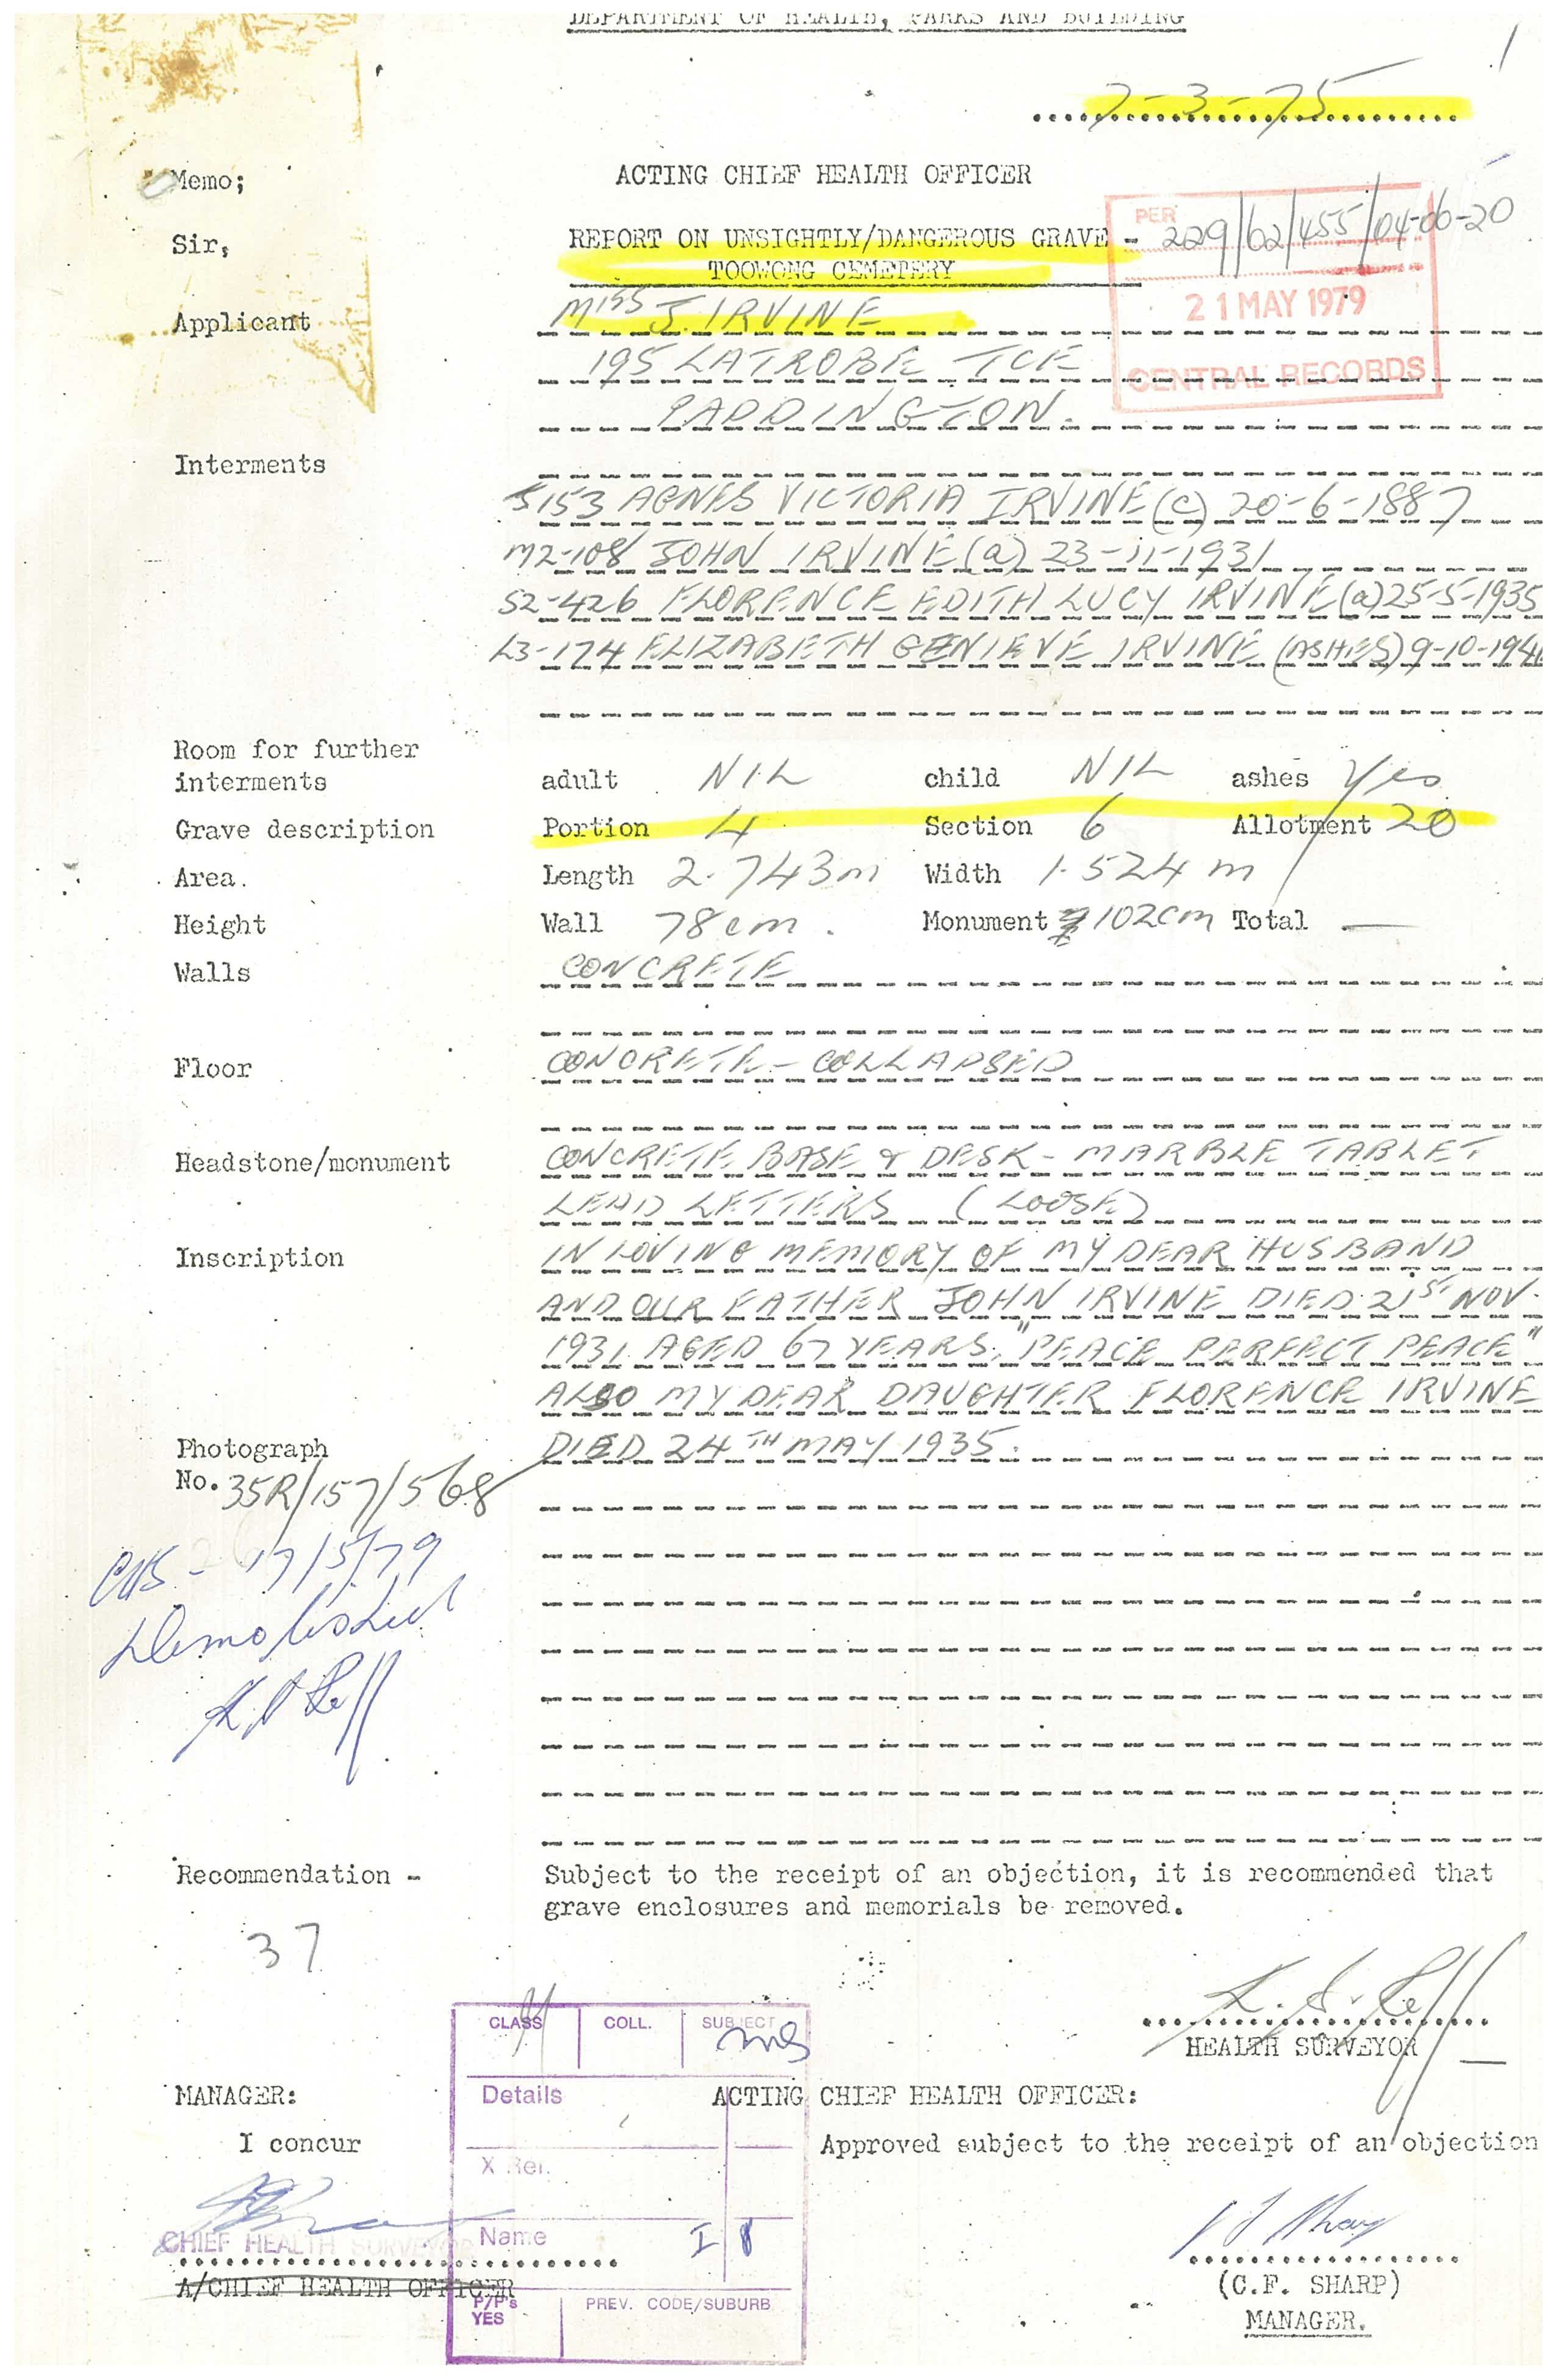 DEPARTMENT OF HEALTH, PARKS AND BUILDING
1
7-3-75
Memo; ACTING CHIEF HEALTH OFFICER
Sir, REPORT ON UNSIGHTLY/DANGEROUS GRAVE - 229/62/455/04-06-20
TOOWONG CEMETERY
PER
21 MAY 1979
CENTRAL RECORDS
Applicant MISS J IRVINE
195 LATROBE TCE
PADDINGTON.
Interments
5153 AGNES VICTORIA IRVINE (C) 20-6-1887
M2-108 JOHN IRVINE (a) 23-11-1931
S2-426 FLORENCE EDITH LUCY IRVINE (a) 25-5-1935
L3-174 ELIZABETH GENIEVE IRVINE (ASHES) 9-10-194
Room for further
interments adult NIL child NIL ashes Yes
Grave description Portion 4 Section 6 Allotment 20
Area. Length 2.743m Width 1.524 m
Height Wall 78cm. Monument 102cm Total —
Walls CONCRETE
Floor CONCRETE - COLLAPSED
Headstone/monument CONCRETE BASE & DESK - MARBLE TABLET
LEAD LETTERS (LOOSE)
Inscription IN LOVING MEMORY OF MY DEAR HUSBAND
AND OUR FATHER JOHN IRVINE DIED 21ST NOV.
1931 AGED 67 YEARS. "PEACE PERFECT PEACE"
ALSO MY DEAR DAUGHTER FLORENCE IRVINE
DIED 24TH MAY 1935.
Photograph
No. 35R/157/568
17/5/79
Demolished
Recommendation - Subject to the receipt of an objection, it is recommended that
grave enclosures and memorials be removed.
37
HEALTH SURVEYOR
CLASS COLL. SUBJECT
Details
X Ref.
Name I
P/P's
YES
PREV. CODE/SUBURB
MANAGER: ACTING CHIEF HEALTH OFFICER:
I concur Approved subject to the receipt of an objection
CHIEF HEALTH SURVEYOR
A/CHIEF HEALTH OFFICER
(C.F. SHARP)
MANAGER.